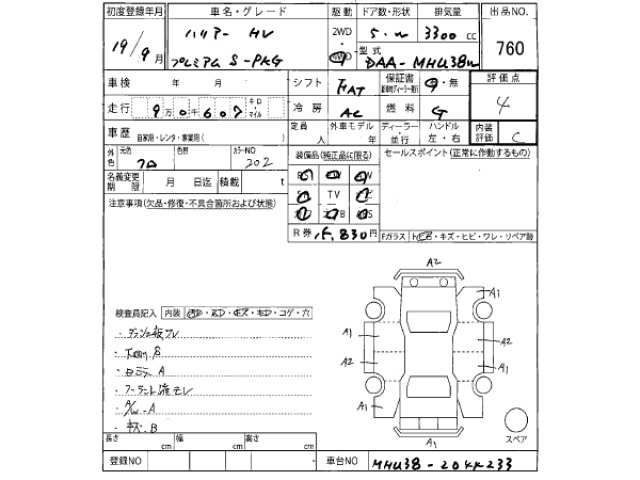 初度登録年月 車名・グレード 駆動 ドア数・形状 排気量 出品NO.
19/9月 ハリアー HV 2WD 5・ 3300cc 760
プレミアム S-PKG 4WD 型式 DAA-MHU38W
車検 年 月 シフト FAT 保証書 有・無 評価点
走行 9万0千607 キロ・マイル 冷房 AC 燃料 G 4
車歴 自家用・レンタ・事業用( ) 定員 人 外車モデル 年 ディーラー・並行 ハンドル 左・右 内装評価 C
外色 元色 クロ 色替 カラーNO 202 装備品(純正品に限る) セールスポイント(正常に作動するもの)
名義変更期限 月 日迄 積載 t TV
注意事項(欠品・修復・不具合箇所および状態)
R券 830円 Fガラス キズ・ヒビ・ワレ・リペア跡
A2
A1
A1
A1
A2
A2
A1
A1
A1
スペア
検査員記入 内装 コゲ・穴
・ダッシュ板ワレ
A
・A/W-A
B
長さ cm 幅 cm 高さ cm
登録NO 車台NO MHU38-204